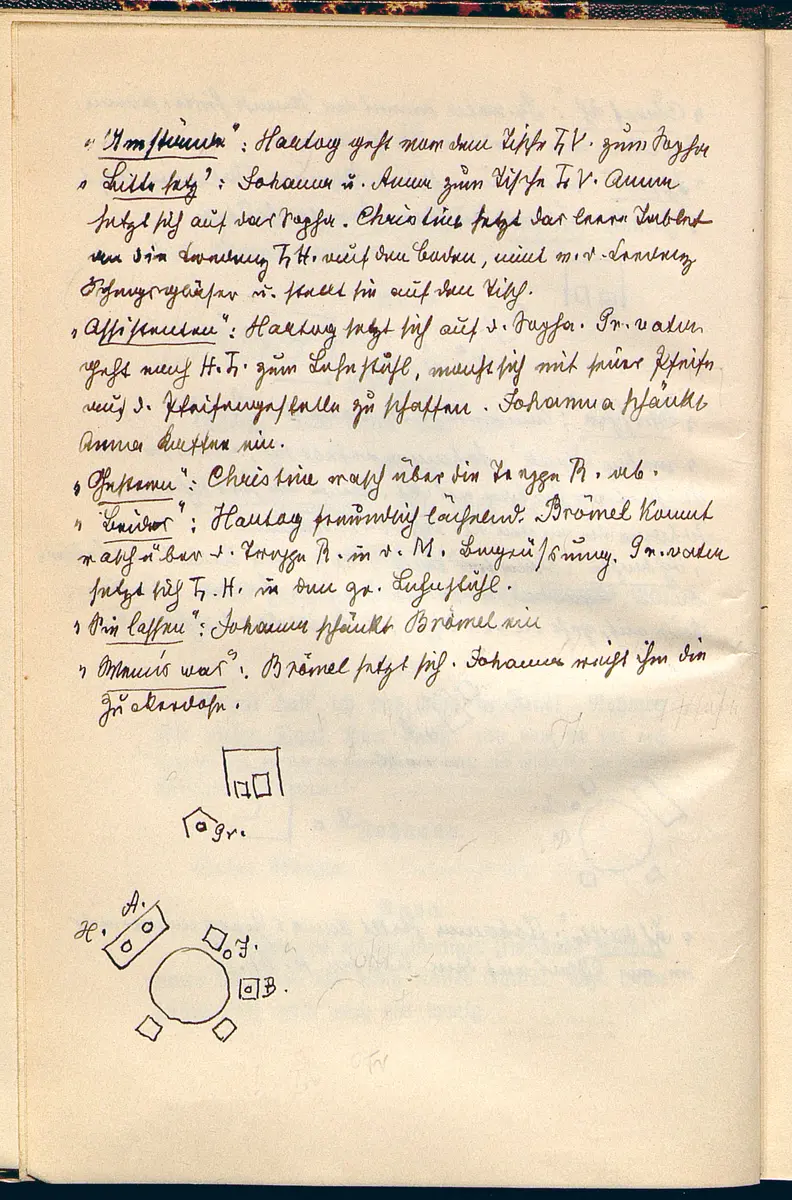 "Umstände": Hartog geht von dem Tische L. V. zum Sopha
" Bitte setz": Johanna u. Anna zum Tische L. V. Anna
setzt sich auf das Sopha. Christine setzt das leere Tablet
an die Kredenz L. H. auf den Boden, nimt v. d. Kredenz
Schnapsgläser u. stellt sie auf den Tisch.
" Assistenten": Hartog setzt sich auf d. Sopha. Gr. vater
geht nach H. L. zum Lehnstuhl, macht sich mit seiner Pfeife
aus d. Pfeifengestelle zu schaffen. Johanna schänkt
Anna Kaffee ein.
" Gestern": Christine rasch über die Treppe R. ab.
" Beides": Hartog freundlich lächelnd. Brömel kommt
rasch über d. Treppe R. in d. M. Begrüssung. Gr. vater
setzt sich L. H. in den gr. Lehnstuhl.
" Sie lassen": Johanna schänkt Brömel ein
" Wenn's was": Brömel setzt sich. Johanna reicht ihm die
Zuckerdose.
Gr.
A.
H.
J.
B.